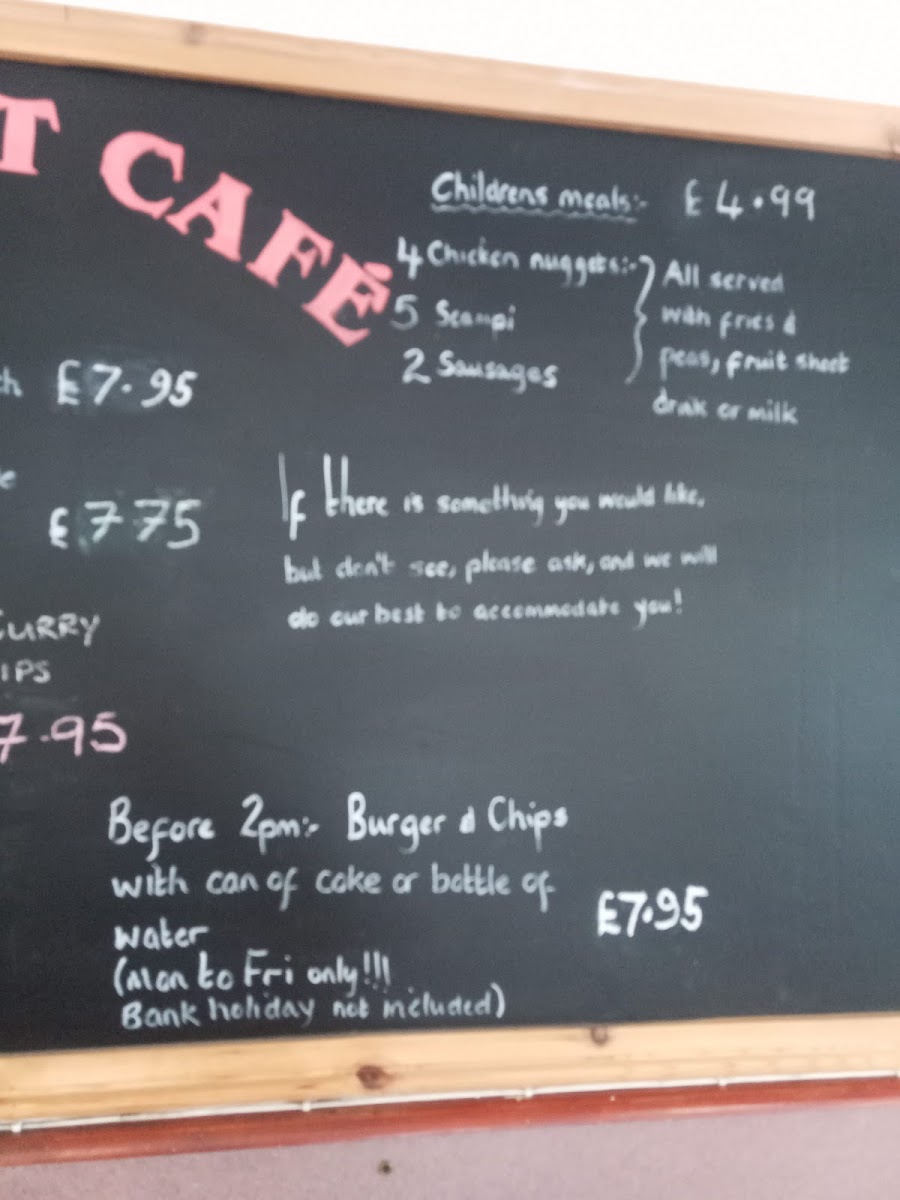 T CAFÉ
Childrens meals:- £4.99
4 Chicken nuggets:-
5 Scampi
2 Sausages
All served
with fries &
peas, fruit shoot
drink or milk
£7.95
£7.75
CURRY
IPS
7.95
If there is something you would like,
but don't see, please ask, and we will
do our best to accommodate you!
Before 2pm:- Burger & Chips
with can of coke or bottle of
water
£7.95
(Mon to Fri only!!!
Bank holiday not included)